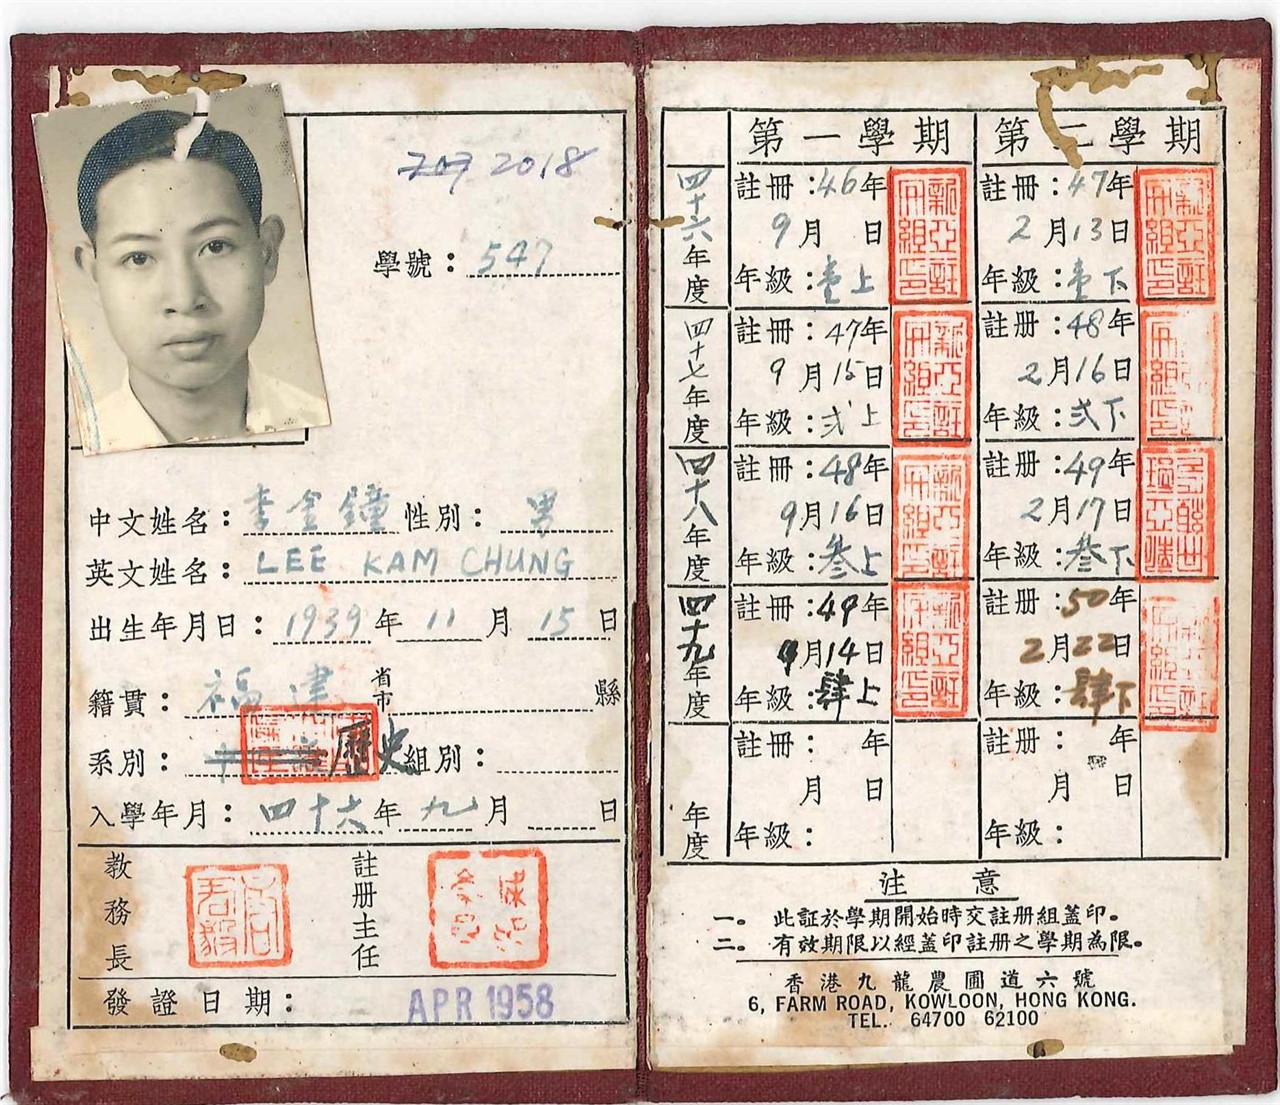 2018
學號：547
中文姓名：李金鐘 性別：男
英文姓名：LEE KAM CHUNG
出生年月日：1939年11月15日
籍貫：福建 省市 縣
系別：歷史 組別：
入學年月：四十六年九月 日
教務長 註册主任
發證日期：APR 1958
第一學期 第二學期
四十六年度 註冊：46年9月 日 年級：壹上 註冊：47年2月13日 年級：壹下
四十七年度 註冊：47年9月15日 年級：弍上 註册：48年2月16日 年級：弍下
四十八年度 註冊：48年9月16日 年級：叁上 註册：49年2月17日 年級：叁下
四十九年度 註冊：49年9月14日 年級：肆上 註册：50年2月22日 年級：肆下
年度 註冊： 年 月 日 年級： 註册： 年 月 日 年級：
注意
一。 此証於學期開始時交註册組蓋印。
二。 有效期限以經蓋印註册之學期為限。
香港九龍農圃道六號
6, FARM ROAD, KOWLOON, HONG KONG.
TEL. 64700 62100